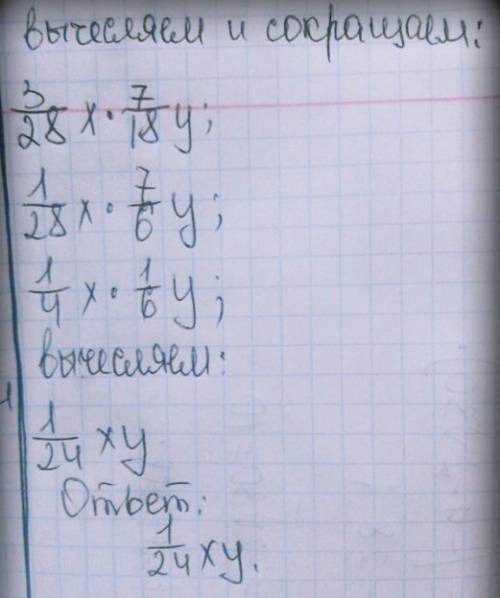 вычесляем и сокращаем:
3/28 x · 7/18 y;
1/28 x · 7/6 y;
1/4 x · 1/6 y;
вычесляем:
1/24 xy
Ответ:
1/24 xy.